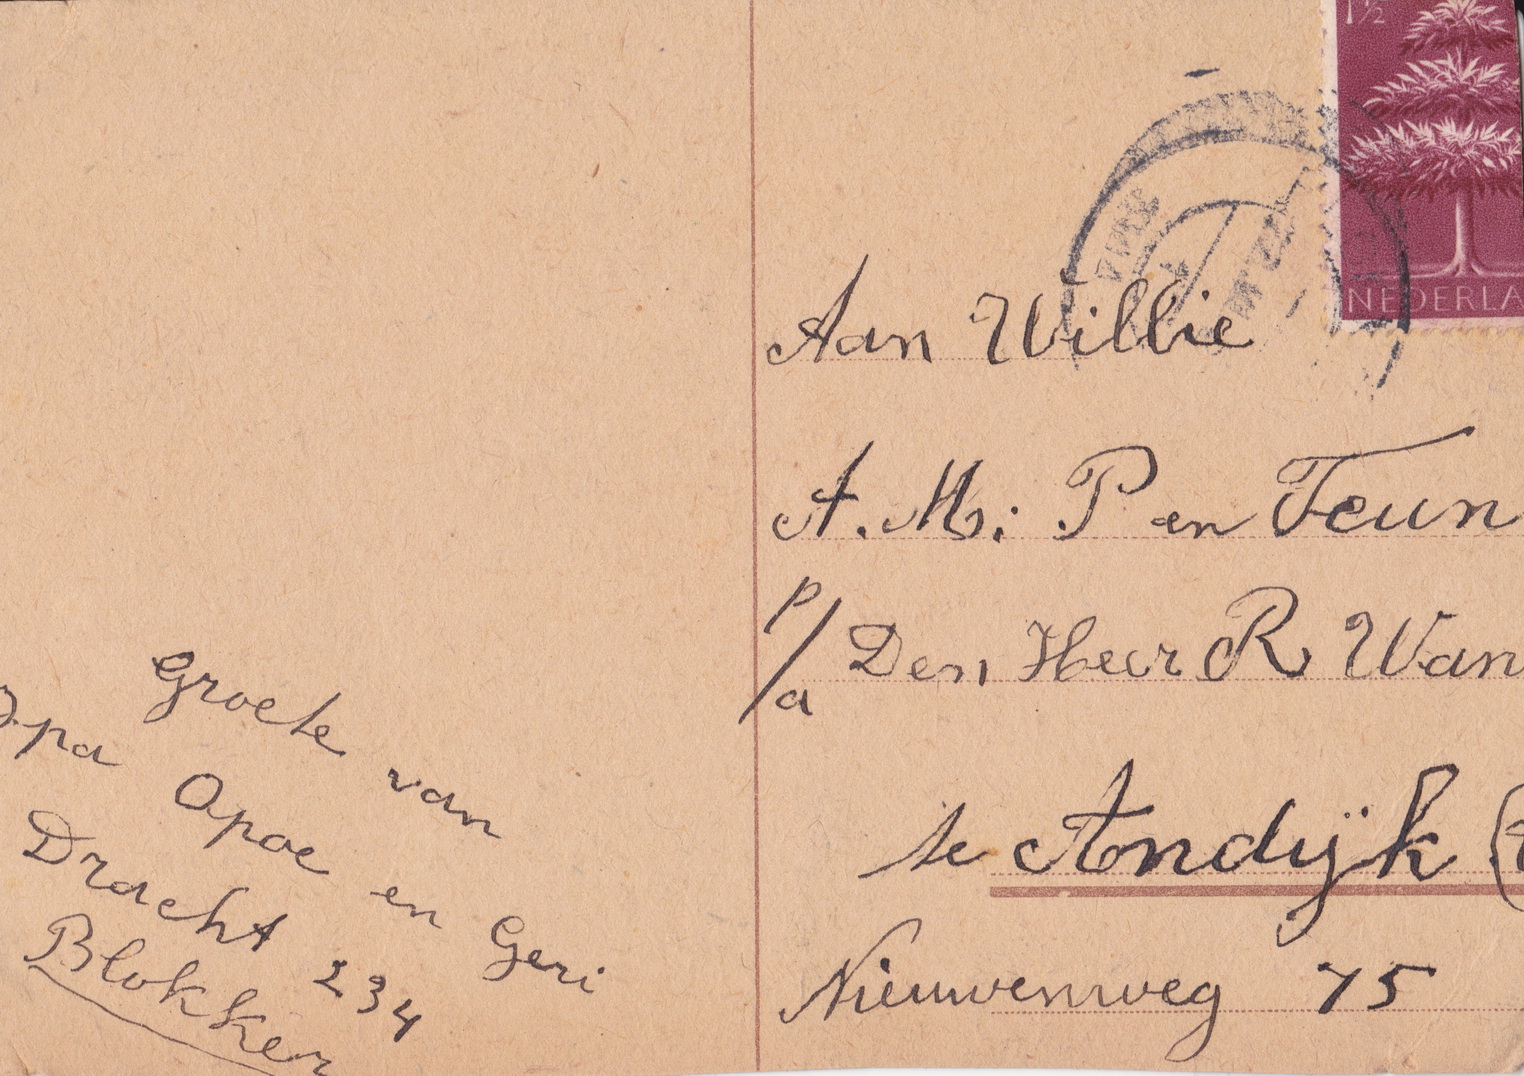 Groete van
Opa Opoe en Geri
Dracht 234
Blokker
1½
NEDERLA
Aan Willie
A. M: P en Teun
p/a Den Heer R Wan
te Andÿk (
Nieuwenweg 75